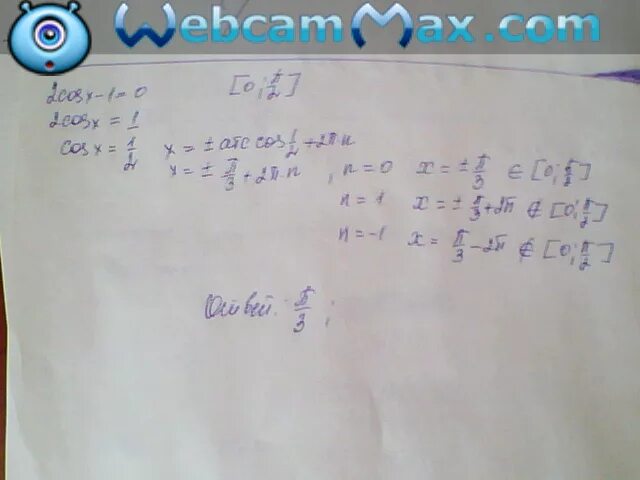 WebcamMax.com
2cosx-1=0 [0; π/2]
2cosx = 1
cosx = 1/2 x = ± arc cos 1/2 + 2π·n
x = ± π/3 + 2π·n , n = 0 x = ± π/3 ∈ [0; π/2]
n = 1 x = ± π/3 + 2π ∉ [0; π/2]
n = -1 x = π/3 - 2π ∉ [0; π/2]
Ответ: π/3 ;